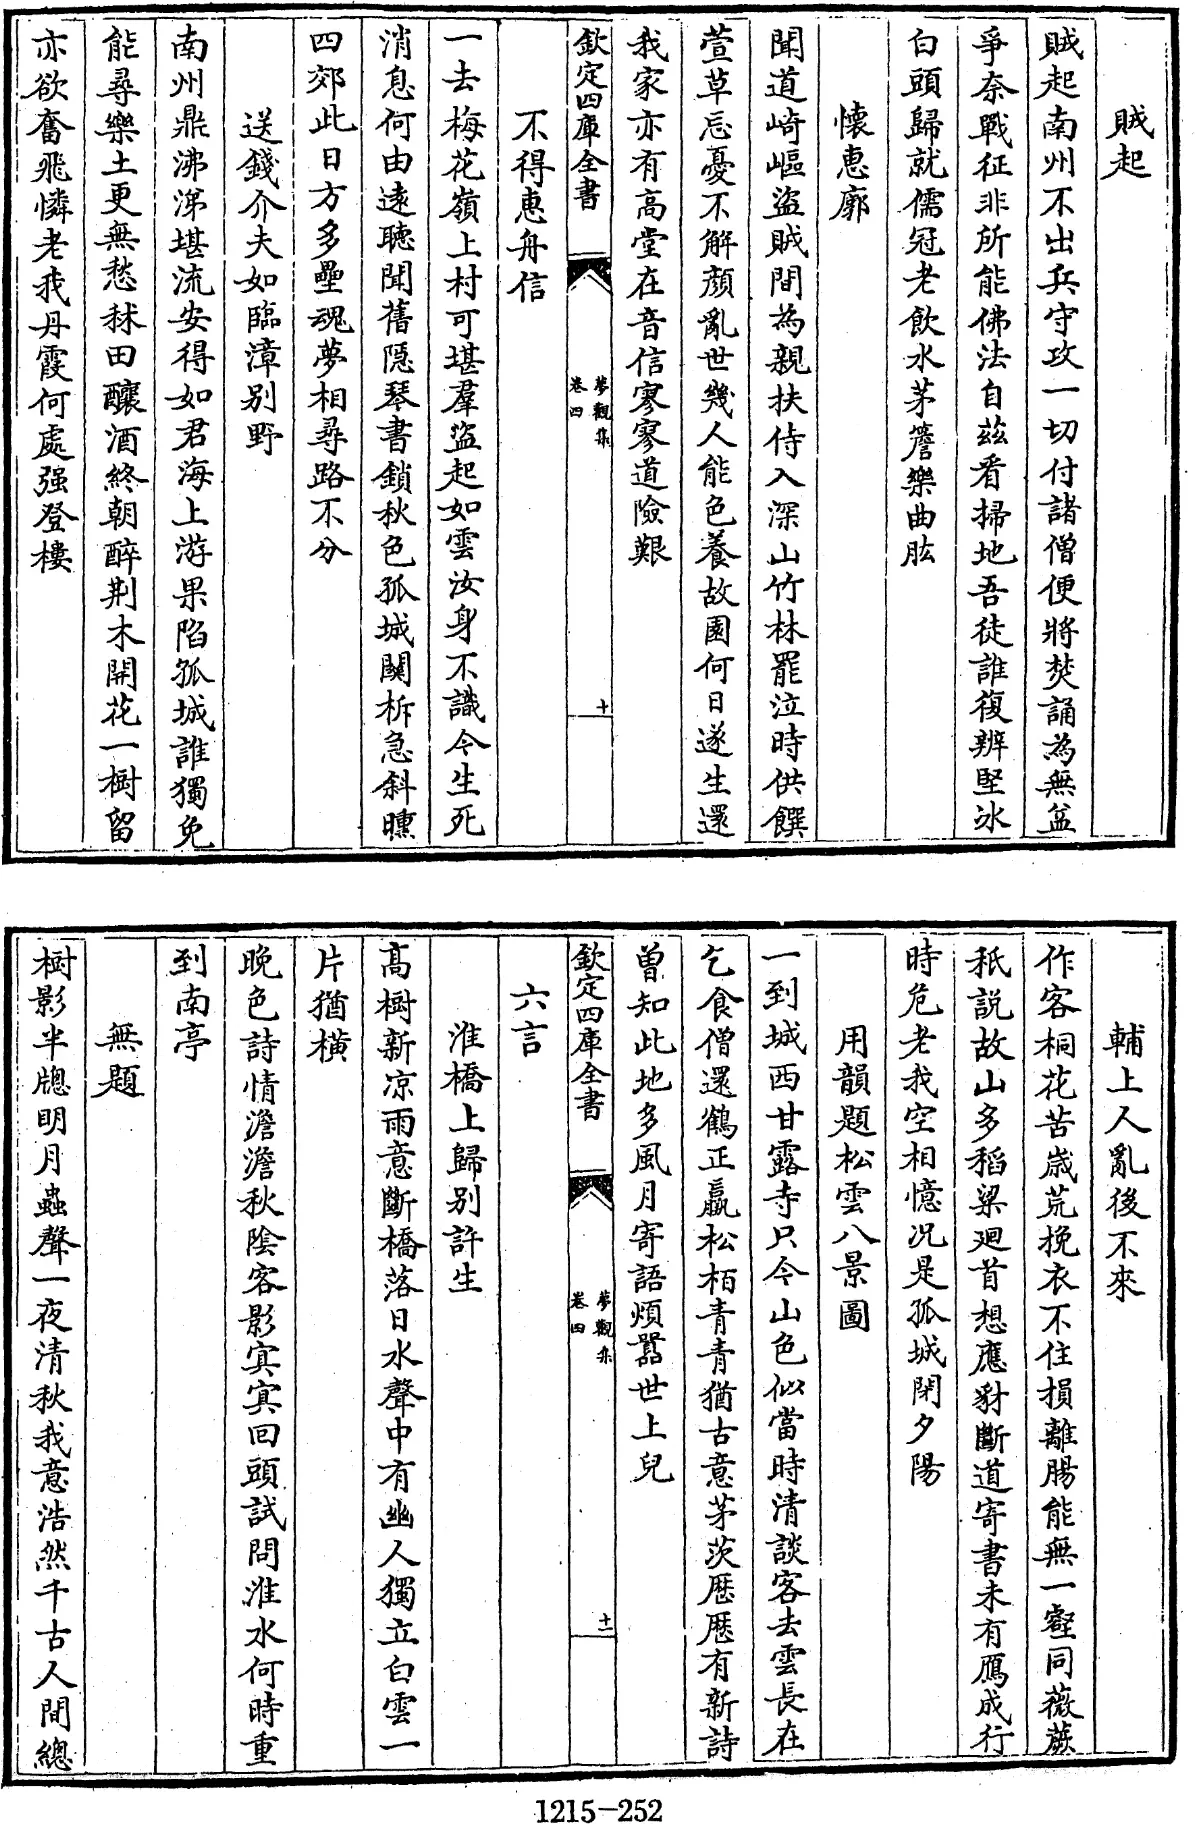 賊起
賊起南州不出兵守攻一切付諸僧便將焚誦為無益
爭奈戰征非所能佛法自茲看掃地吾徒誰復辨堅冰
白頭歸就儒冠老飲水茅簷樂曲肱
懷惠廓
聞道崎嶇盜賊間為親扶侍入深山竹林罷泣時供饌
萱草忘憂不解顔亂世幾人能色養故園何日遂生還
我家亦有高堂在音信寥寥道險艱
欽定四庫全書
夢觀集
卷四
十
不得惠舟信
一去梅花嶺上村可堪羣盜起如雲汝身不識今生死
消息何由遠聽聞舊隱琴書鎖秋色孤城闗柝急斜曛
四郊此日方多壘魂夢相尋路不分
送錢介夫如臨漳別野
南州鼎沸涕堪流安得如君海上游果陷孤城誰獨免
能尋樂土更無愁秫田釀酒終朝醉荆木開花一樹留
亦欲奮飛憐老我丹霞何處强登樓
輔上人亂後不來
作客桐花苦歳荒挽衣不住損離腸能無一壑同薇蕨
秖説故山多稻粱廻首想應豺斷道寄書未有鴈成行
時危老我空相憶況是孤城閉夕陽
用韻題松雲八景圖
一到城西甘露寺只今山色似當時清談客去雲長在
乞食僧還鶴正羸松栢青青猶古意茅茨歴歴有新詩
曽知此地多風月寄語煩囂世上兒
欽定四庫全書
夢觀集
卷四
十一
六言
淮橋上歸别許生
高樹新凉雨意斷橋落日水聲中有幽人獨立白雲一
片猶橫
晚色詩情澹澹秋隂客影寅寅回頭試問淮水何時重
到南亭
無題
樹影半牎明月蟲聲一夜清秋我意浩然千古人間總
1215-252